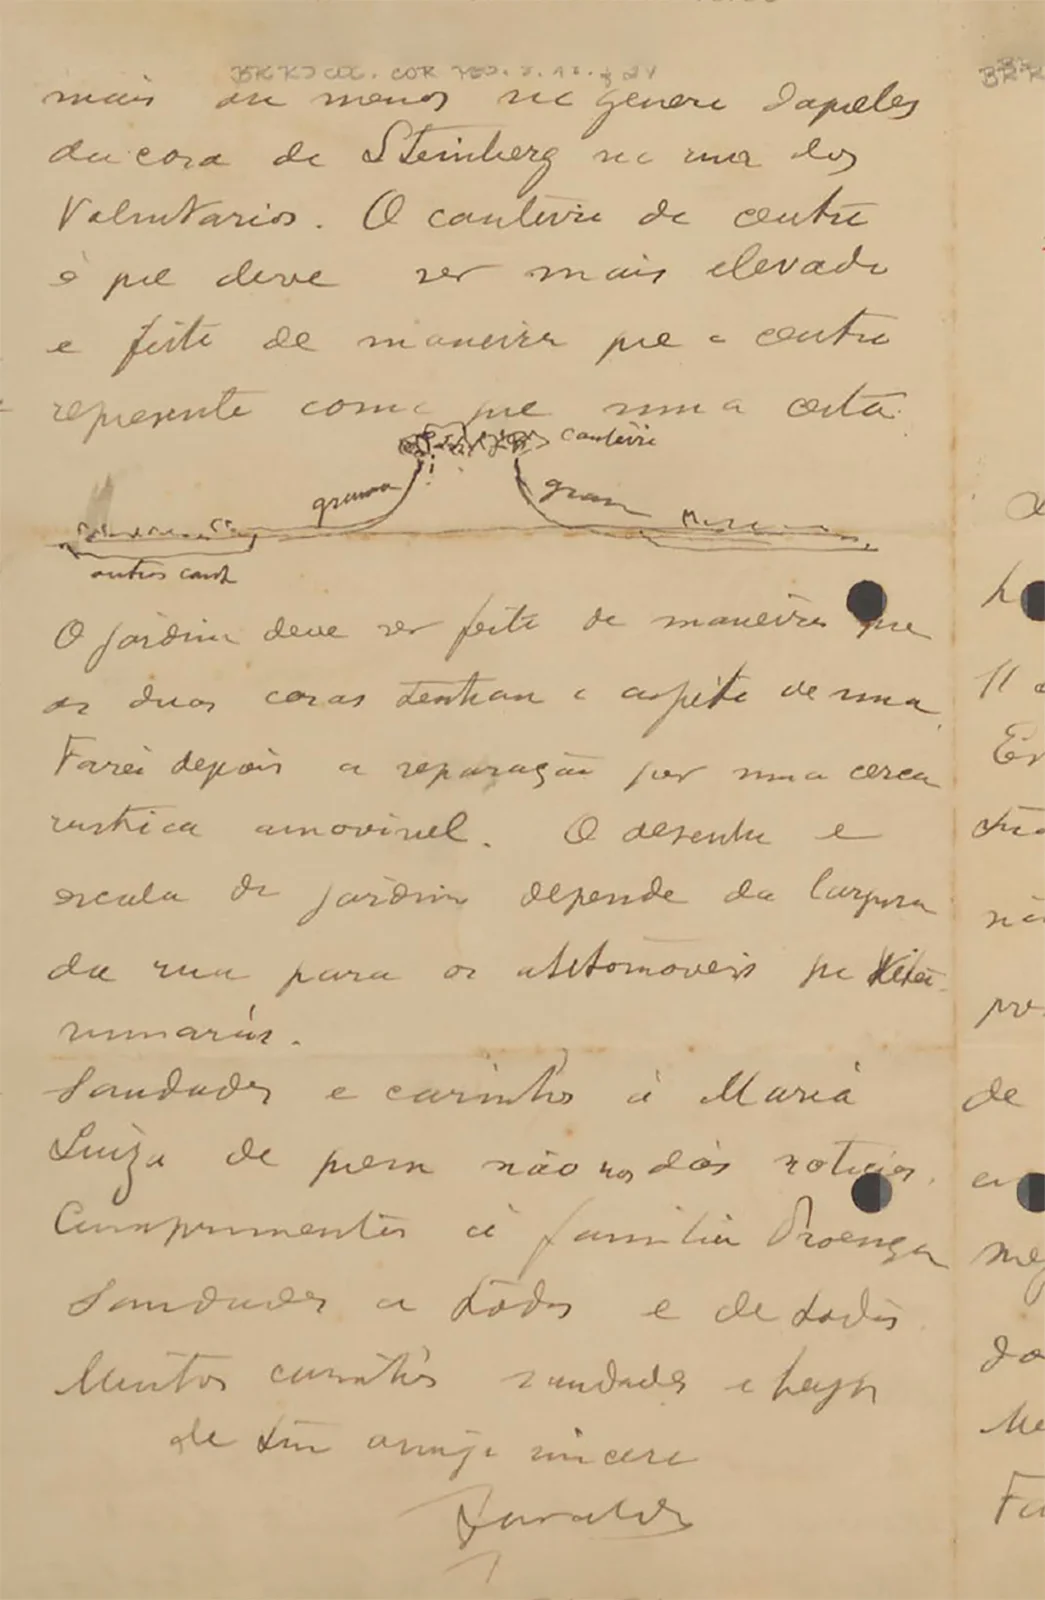 BR RJCOC.COR
mais ou menos no genero daqueles
da casa de Steinberg na rua dos
Voluntarios. O canteiro do centro
é que deve ser mais elevado
e feito de maneira que o centro
represente como que uma cesta.
canteiro
grama
gram
outros cant
O jardim deve ser feito de maneira que
as duas casas tenham o aspéto de uma.
Farei depois a separação por uma cerca
rustica amovivel. O desenho e
escala do jardim depende da largura
da rua para os automoveis que
Saudades e carinhos á Maria
Luiza de quem não nos dás noticias.
Cumprimentos á familia Proença
Saudades a todos e de todos
Muitos carinhos saudades e
do teu amigo sincero
de
Er
nã